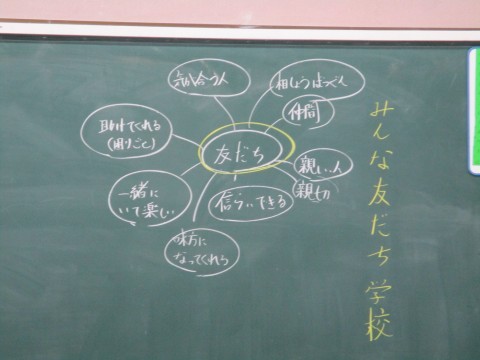 気が合う人
相しょうばつぐん
仲間
助けてくれる
(困りごと)
友だち
親しい人
親切
一緒に
いて楽しい
信らいできる
味方に
なってくれる
みんな友だち学校